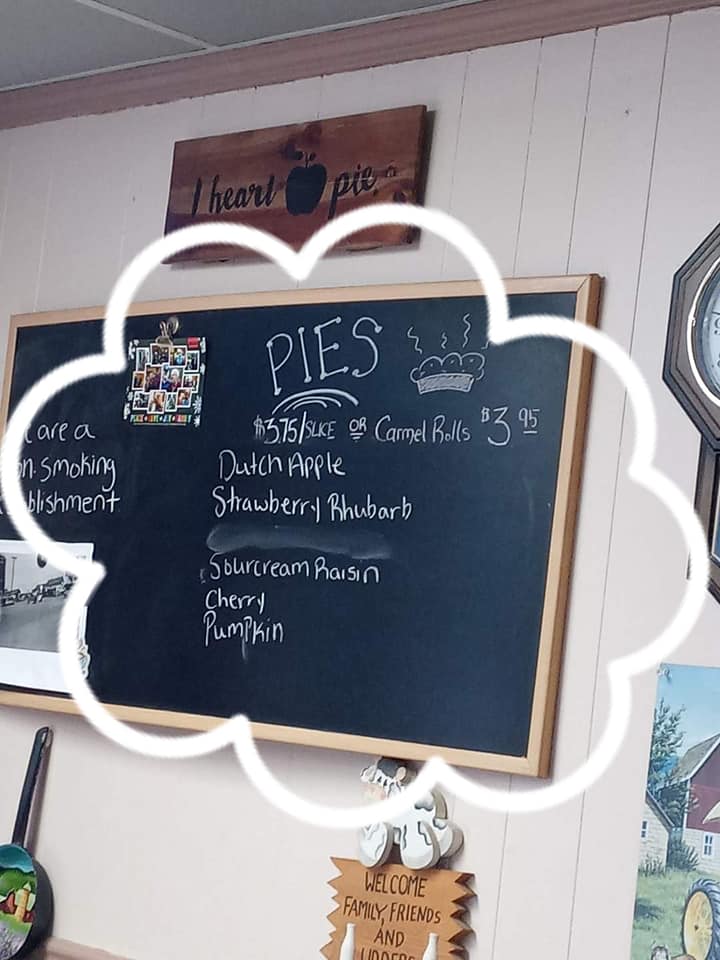 I heart pie
PIES
$3.75/SLICE OR Carmel Rolls $3.95
are a
smoking
Dutch Apple
Strawberry Rhubarb
Sourcream Raisin
Cherry
Pumpkin
WELCOME
FAMILY, FRIENDS
AND